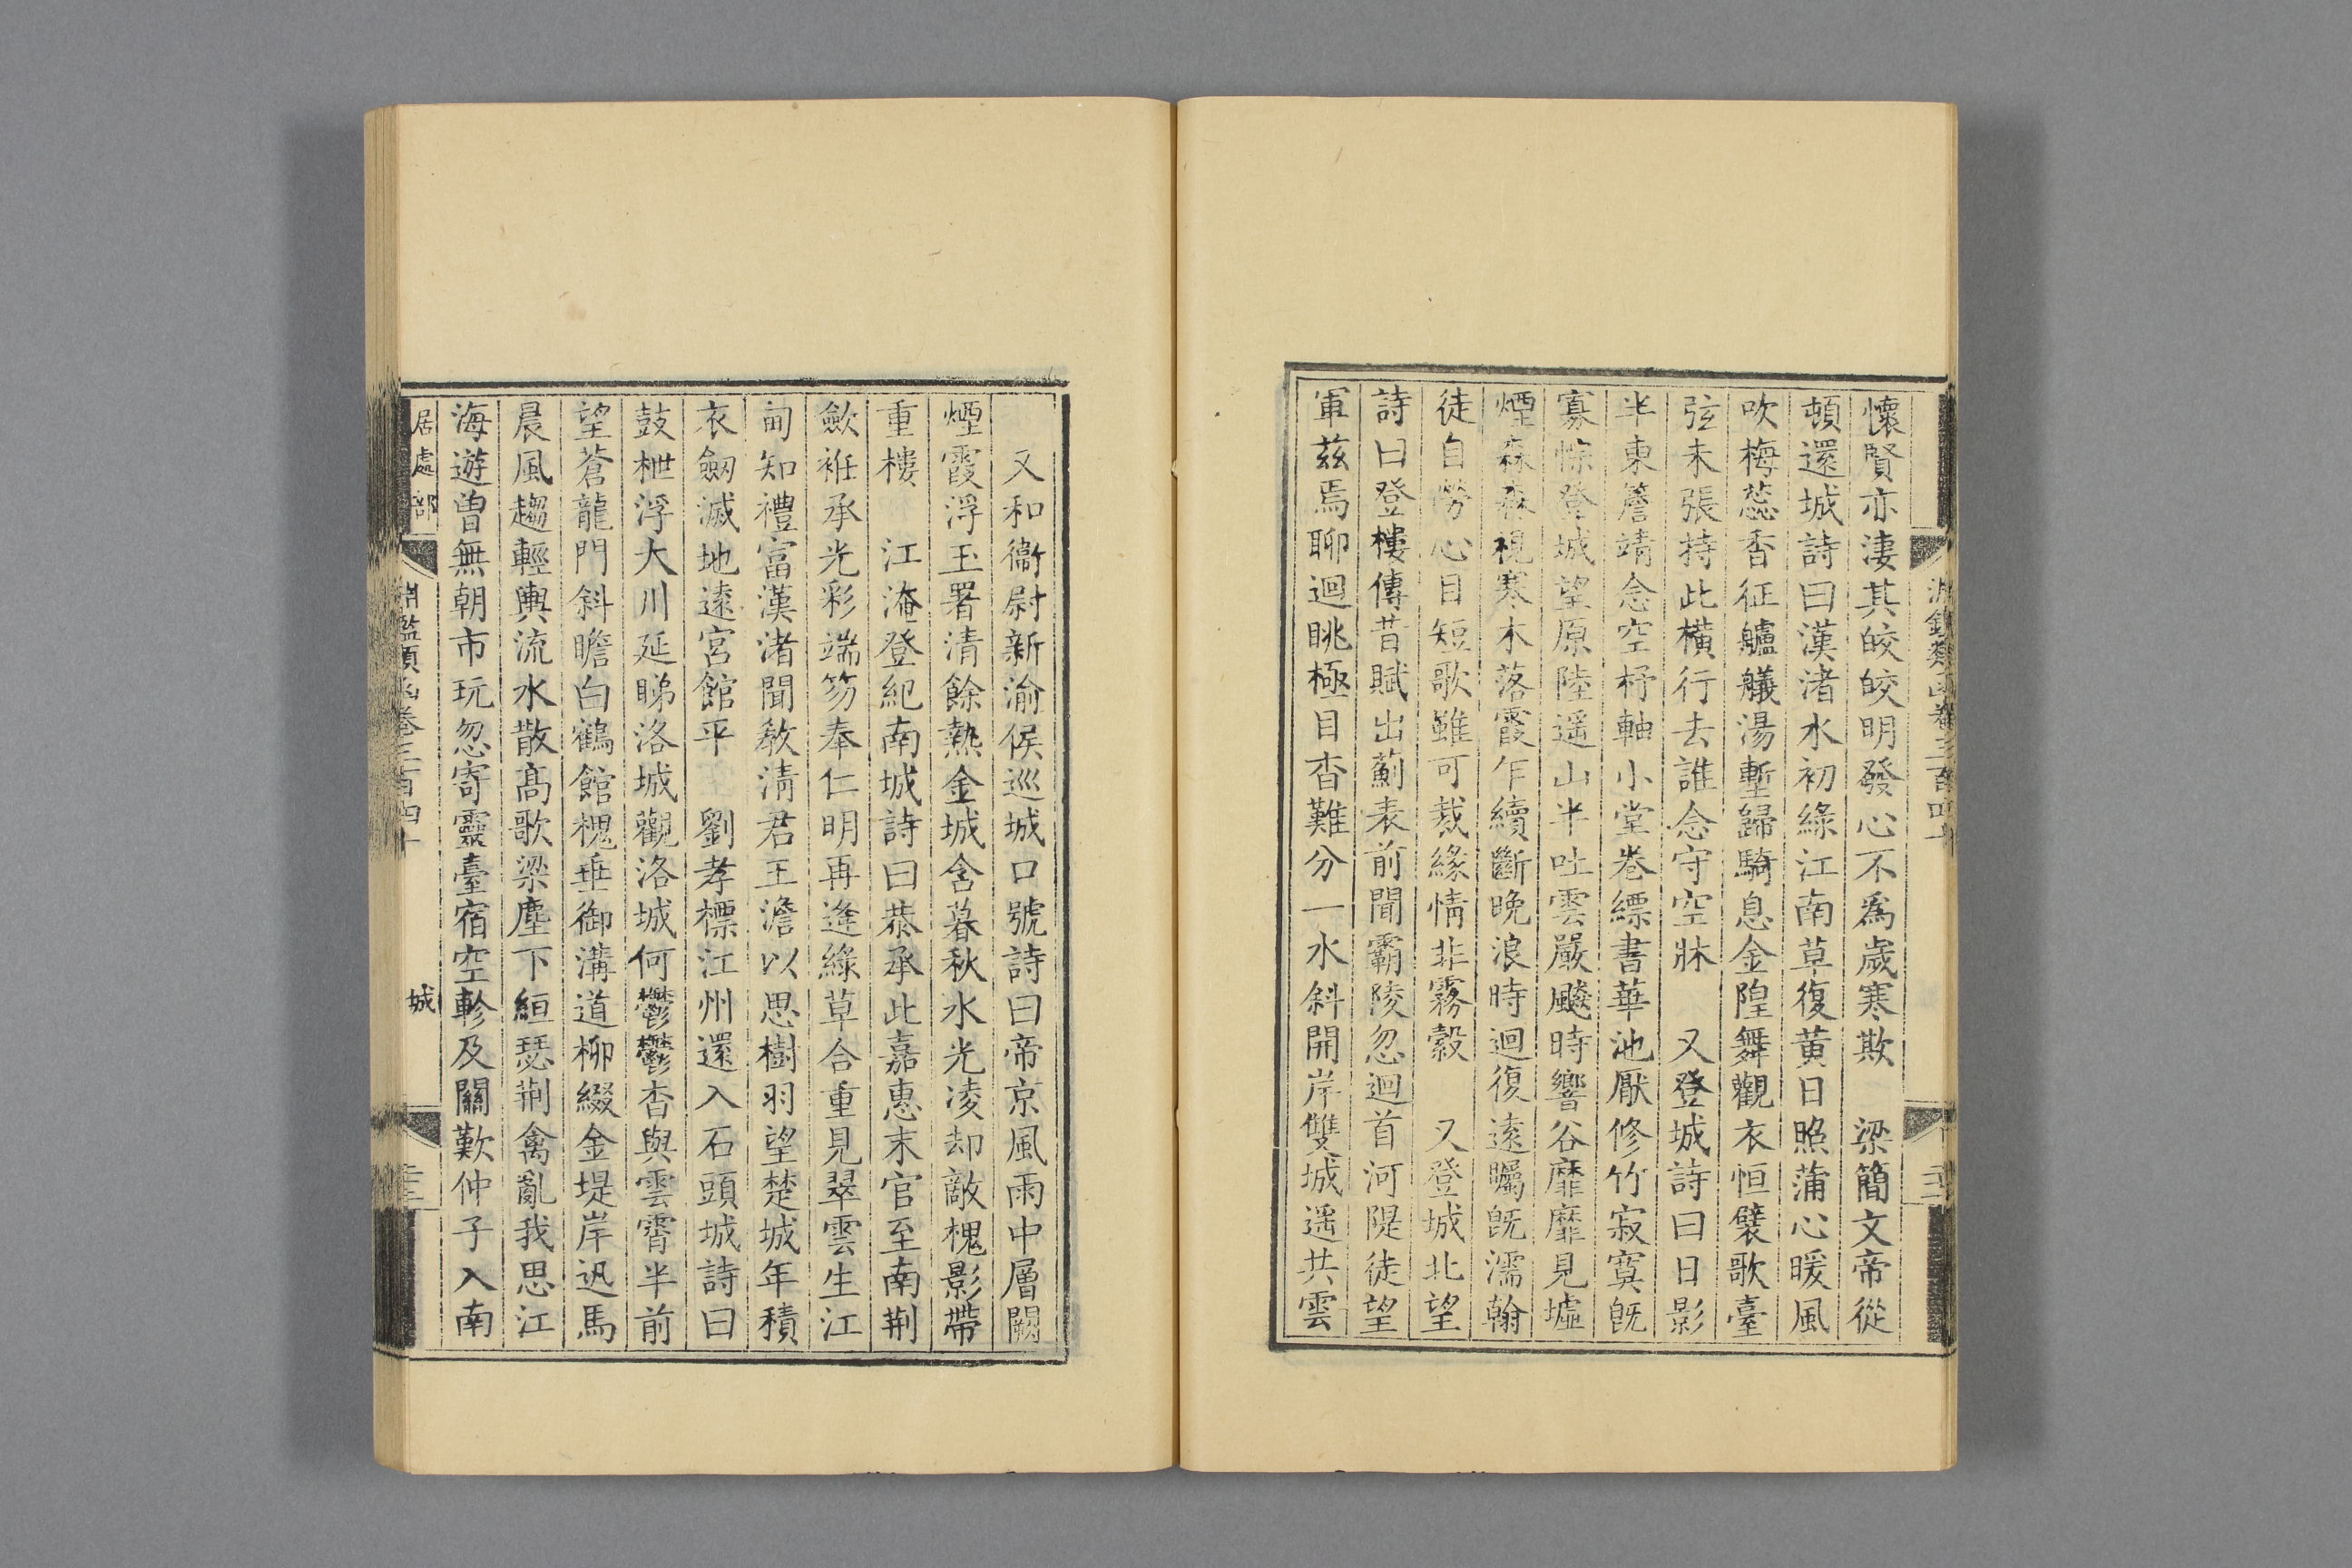 懷賢亦淒其皎皎明發心不爲歲寒欺　梁簡文帝從
頓還城詩曰漢渚水初綠江南草復黄日照蒲心暖風
吹梅蕊香征艫艤湯塹歸騎息金隍舞觀衣恒襞歌臺
弦未張持此橫行去誰念守空牀　又登城詩曰日影
半東簷靖念空杼軸小堂卷縹書華池厭修竹寂寞旣
寡悰登城望原陸遥山半吐雲嚴飈時響谷靡靡見墟
煙森森視寒木落霞乍續斷晚浪時迴復遠矚旣濡翰
徒自勞心目短歌雖可裁緣情非霧縠　又登城北望
詩曰登樓傳昔賦出薊表前聞霸陵忽迴首河隄徒望
軍茲焉聊迴眺極目杳難分一水斜開岸雙城遥共雲
又和衞尉新渝侯巡城口號詩曰帝京風雨中層闕
煙霞浮玉署清餘熱金城含暮秋水光凌却敵槐影帶
重樓　江淹登紀南城詩曰恭承此嘉惠末官至南荆
歛袵承光彩端笏奉仁明再逢綠草合重見翠雲生江
甸知禮富漢渚聞教清君王澹以思樹羽望楚城年積
衣劒滅地遠宮館平　劉孝標江州還入石頭城詩曰
鼓枻浮大川延睇洛城觀洛城何鬱鬱杳與雲霄半前
望蒼龍門斜瞻白鶴館槐垂御溝道柳綴金堤岸迅馬
晨風趨輕輿流水散髙歌梁塵下絙瑟荆禽亂我思江
海遊曾無朝市玩忽寄靈臺宿空軫及關歎仲子入南
居處部
淵鑑類函卷三百四十
城